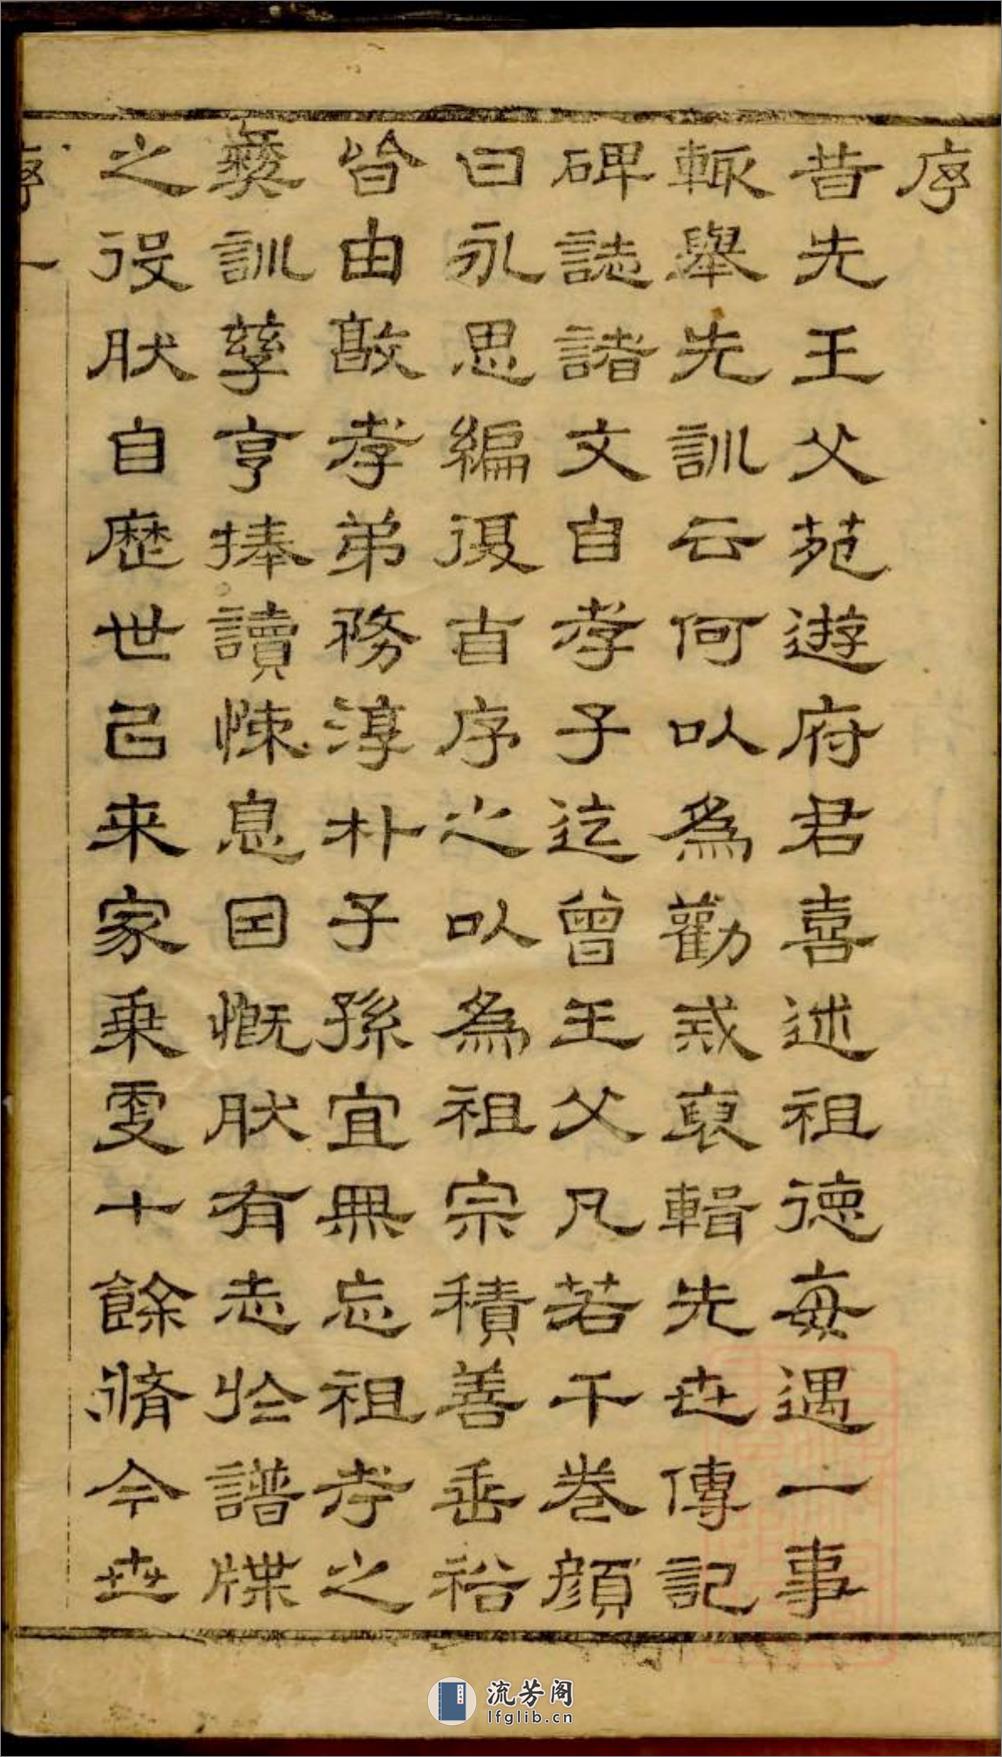 序
昔先王父苑遊府君喜述祖德每遇一事
輒舉先訓云何以為勸戒裒輯先世傳記
碑誌諸文自孝子迄曾王父凡若干卷顏
曰永思編復首序之以為祖宗積善垂裕
皆由敦孝弟務淳朴子孫宜無忘祖考之
彝訓孳亨捧讀悚息因慨肰有志於譜牒
之役肰自歷世已來家乘更十餘脩今世
序 一
流芳阁
lfglib.cn